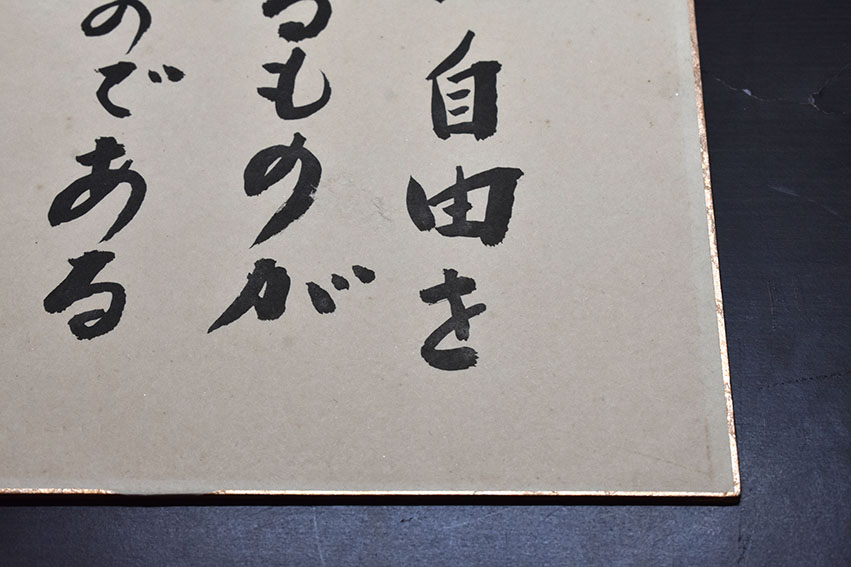 自由を
るものが
のである